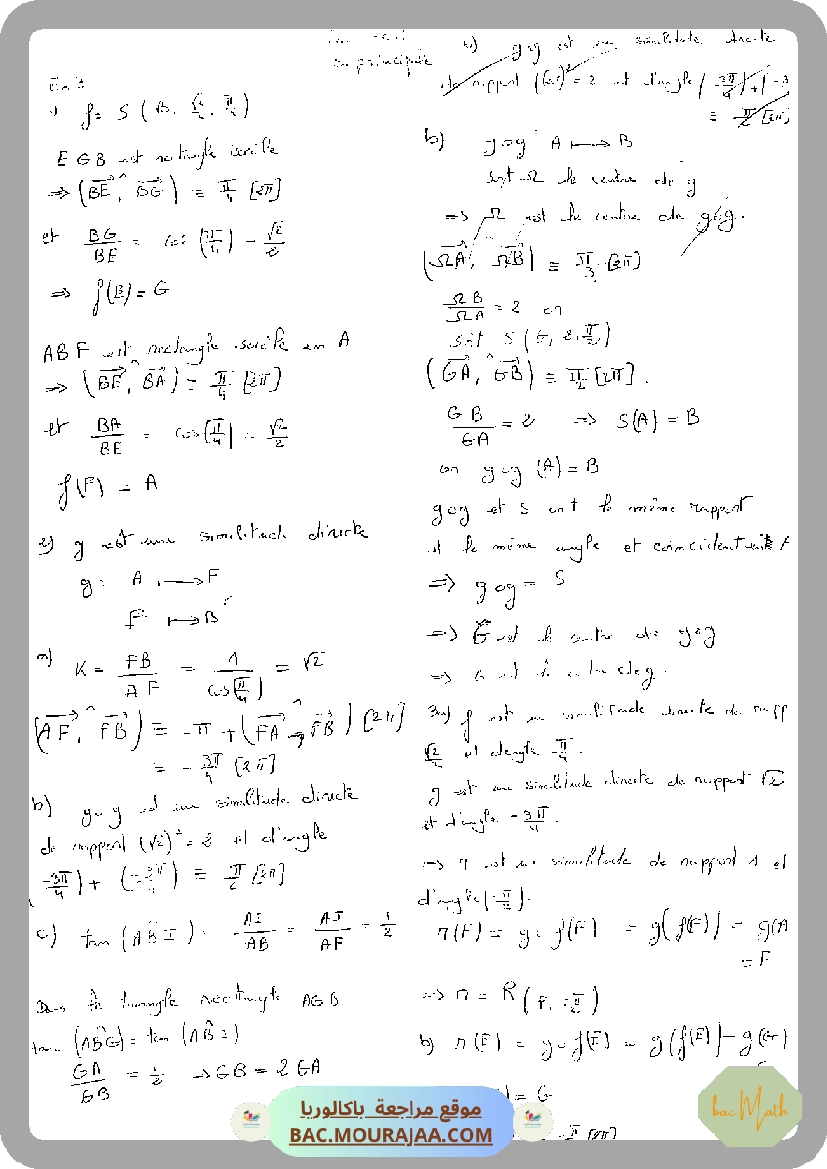 en principale
1) f = S (B, √2/2, π/4)
E G B est rectangle isocèle
⇒ (BE, BG) ≡ π/4 [2π]
et BG/BE = cos (π/4) = √2/2
⇒ f(B) = G
ABF est rectangle isocèle en A
⇒ (BE, BA) ≡ π/4 [2π]
et BA/BE = cos(π/4) = √2/2
f(F) = A
2) g est une similitude directe
g : A ⟼ F
F ⟼ B
a) K = FB/AF = 1/cos(π/4) = √2
(AF, FB) ≡ -π + (FA, FB) [2π]
≡ -3π/4 [2π]
b) gog est une similitude directe
de rapport (√2)² = 2 et d'angle
-3π/4) + (-3π/4) ≡ π/2 [2π]
c) tan (ABI) = AI/AB = AI/AF = 1/2
Dans le triangle rectangle AGB
tan (ABG) = tan (ABI)
GA/GB = 1/2 → GB = 2GA
gog est une similitude directe
de rapport (√2)² = 2 et d'angle
≡ π/2 [2π]
b) gog A ⟼ B
soit Ω le centre de g
⇒ Ω est le centre de gog.
(ΩA, ΩB) ≡ π/2 [2π]
ΩB/ΩA = 2 or
soit S (G, 2, π/2)
(GA, GB) ≡ π/2 [2π].
GB/GA = 2 ⇒ S(A) = B
or gog (A) = B
gog et S ont le même rapport
et le même angle et coïncident
⇒ gog = S
⇒ G est le centre de gog
⇒ G est le centre de g.
3)a) f est une similitude directe de rapp
√2/2 et d'angle π/4.
g est une similitude directe de rapport √2
et d'angle -3π/4.
⇒ r est une similitude de rapport 1 et
d'angle (-π/2).
r(F) = gof(F) = g(f(F)) = g(A
= F
⇒ r = R (F, -π/2)
b) r(E) = gof(E) = g(f(E)) = g(G)
) = G
موقع مراجعة باكالوريا
BAC.MOURAJAA.COM
bac Math